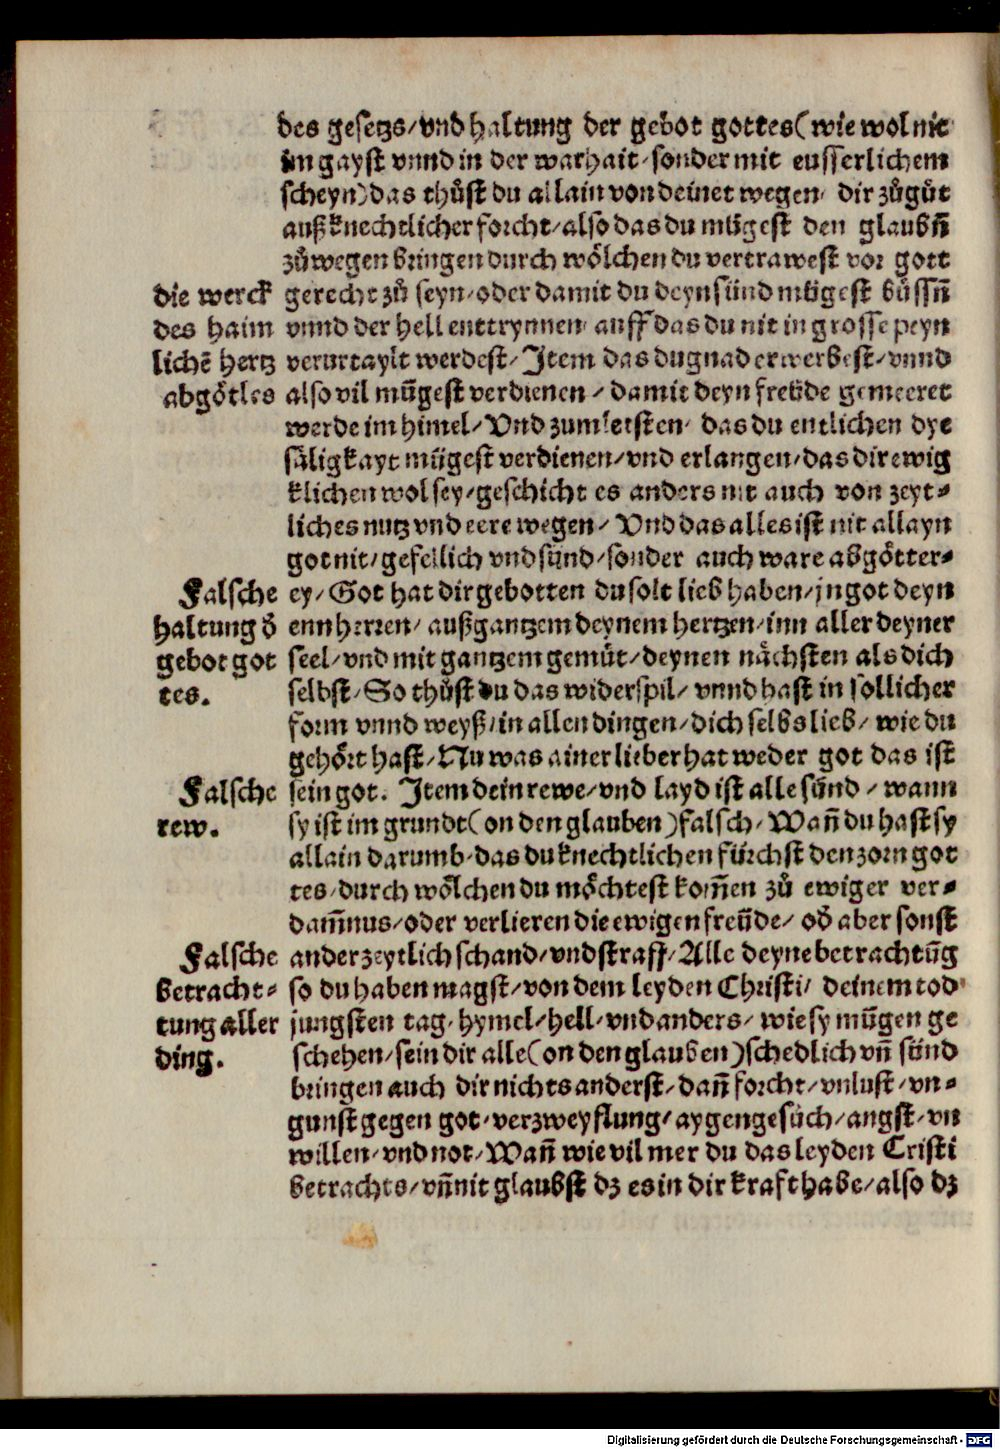 des gesetzs/vnd haltung der gebot gottes(wie wol nit
im gayst vnnd in der warhait/sonder mit eusserlichem
scheyn)das thůst du allain von deinet wegen/ dir zůgůt
auß knechtlicher forcht/also das du mügest den glaubñ
zůwegen bringen durch wölchen du vertrawest vor gott
gerecht zů seyn/oder damit du deyn sünd mügest büssñ
vnnd der hell enttrynnen/ auff das du nit in grosse peyn
verurtaylt werdest/Item das du gnad erwerbest/vnnd
also vil mügest verdienen/damit deyn freüde gemeeret
werde im himel/Vnd zum letsten/ das du entlichen dye
säligkayt mügest verdienen/vnd erlangen/das dir ewig
klichen wol sey/geschicht es anders nit auch von zeyt-
liches nutz vnd eere wegen/Vnd das alles ist nit allayn
got nit/gefellich vnd sünd/sonder auch ware abgötter-
ey/Got hat dir gebotten du solt lieb haben/jn got deyn
enn herren/außgantzem deynem hertzen/inn aller deyner
seel/vnd mit gantzem gemüt/deynen nächsten als dich
selbst/So thůst du das widerspil/vnnd hast in sollicher
form vnnd weyß/in allen dingen/dich selbs lieb/ wie du
gehört hast/Nu was ainer lieber hat weder got das ist
sein got. Item dein rewe/vnd layd ist alle sünd/wann
sy ist im grundt(on den glauben)falsch/Wañ du hast sy
allain darumb/das du knechtlichen fürchst den zorn got
tes/durch wölchen du möchtest kom̃en zů ewiger ver-
dam̃nus/oder verlieren die ewigen freüde/ ob aber sonst
ander zeytlich schand/vnd straff/Alle deyne betrachtũg
so du haben magst/von dem leyden Christi/ deinem tod
jungsten tag/hymel/hell/vnd anders/ wie sy mügen ge
schehen/sein dir alle(on den glauben)schedlich vñ sünd
bringen auch dir nichts anderst/dañ forcht/vnlust/vn-
gunst gegen got/verzweyflung/aygengesüch/angst/vn
willen/vnd not/Wañ wie vil mer du das leyden Cristi
betrachts/vñ nit glaubst dz es in dir kraft habe/also dz
die werck
des haim
lichē hertz
abgötles
Falsche
haltung ď
gebot got
tes.
Falsche
rew.
Falsche
betracht-
tung aller
ding.
Digitalisierung gefördert durch die Deutsche Forschungsgemeinschaft - DFG